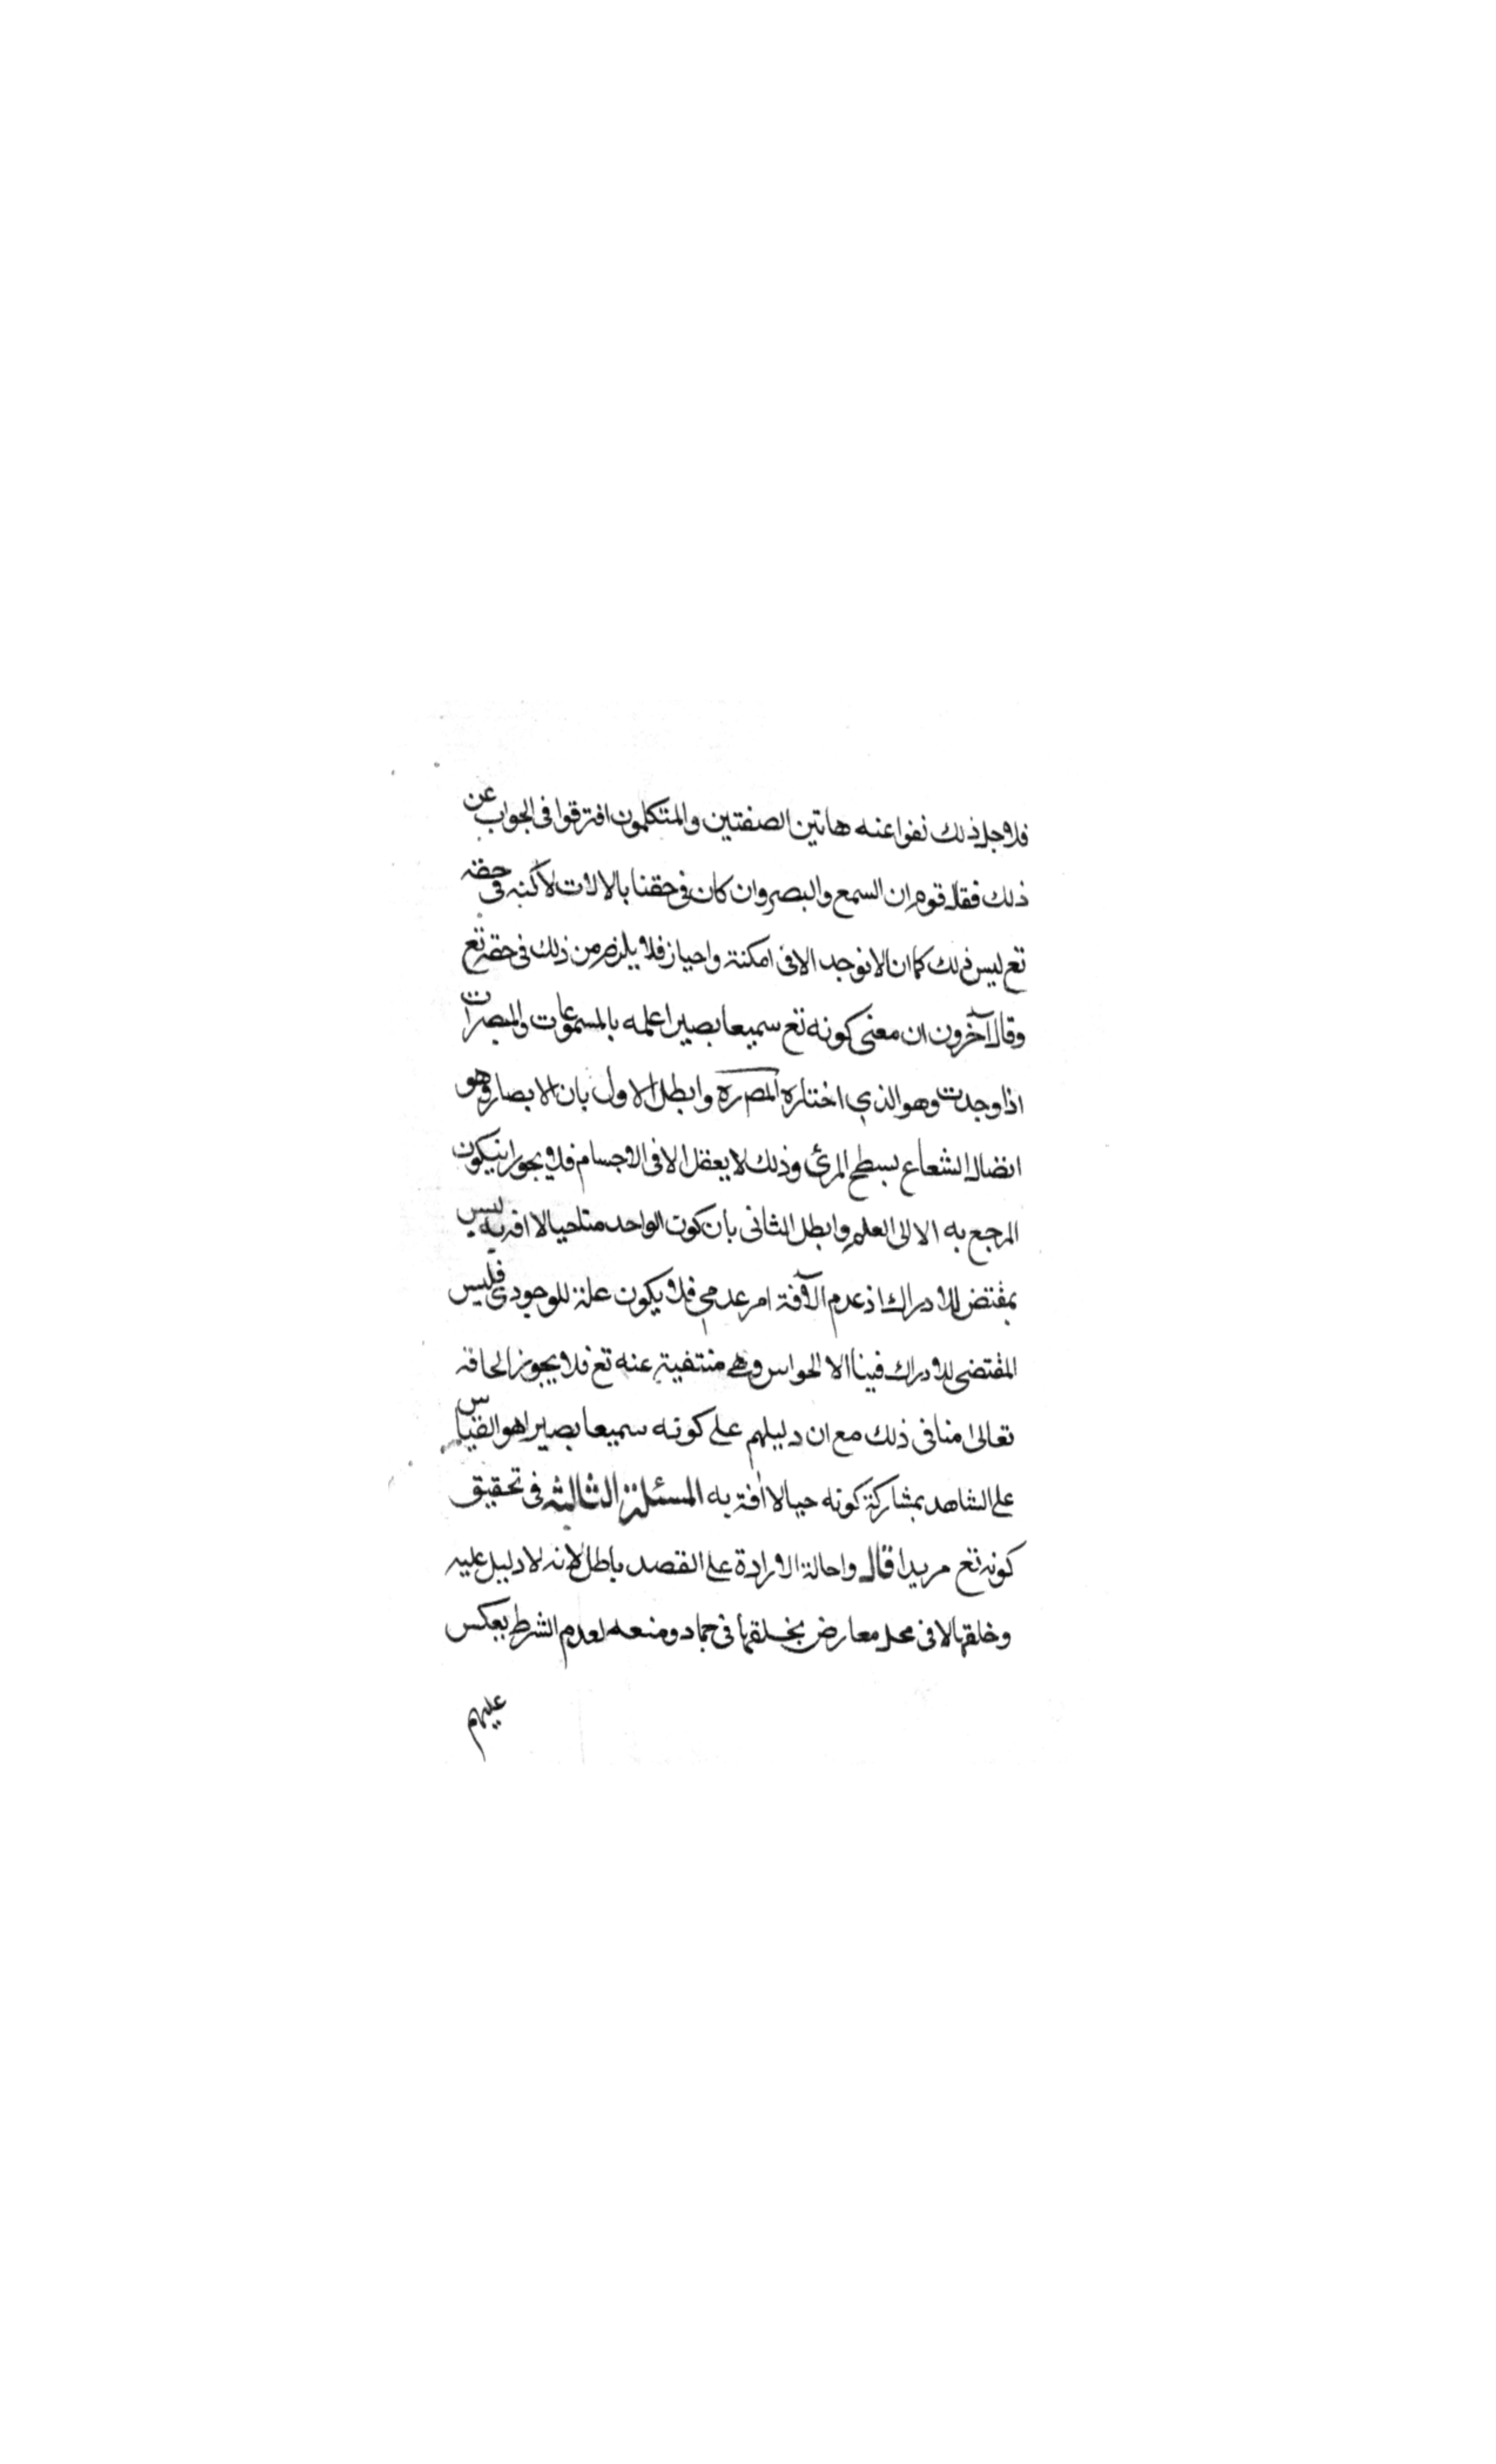 فلاجل ذلك نفوا عنه هاتين الصفتين والمتكلمون افترقوا فى الجواب عن
ذلك فقال قوم ان السمع والبصر وان كان فى حقنا بالالات لاكنه فى حقه
تع ليس كذلك كما انا لا نوجد الا فى امكنة واحياز فلا يلزم من ذلك فى حقه تع
وقال آخرون ان معنى كونه تع سميعا بصيرا علمه بالمسموعات والمبصرات
اذا وجدت وهو الذي اختاره المصره وابطل الاول بان الابصار هو
اتصال الشعاع بسطح المرئ وذلك لا يعقل الا فى الاجسام فلا يجوز ان يكون
المرجع به الا الى العلم وابطل الثانى بان كون الواحد منا حيا لا افه به ليس
بمقتض للادراك اذ عدم الآفة امر عدمي فلا يكون علة للوجودى فليس
المقتضى للادراك فينا الا الحواس وهى منتفية عنه تع فلا يجوز الحاقه
تعالى منا فى ذلك مع ان دليلهم على كونه سميعا بصيرا هو القياس
على الشاهد بمشاركة كونه حيا لا افة به المسئلة الثالثه فى تحقيق
كونه تع مريدا قال واحالة الارادة على القصد باطل لانه لا دليل عليه
وخلقها لا فى محل معارض بخلقها فى جماد ومنعه لعدم الشرط يعكس
عليهم